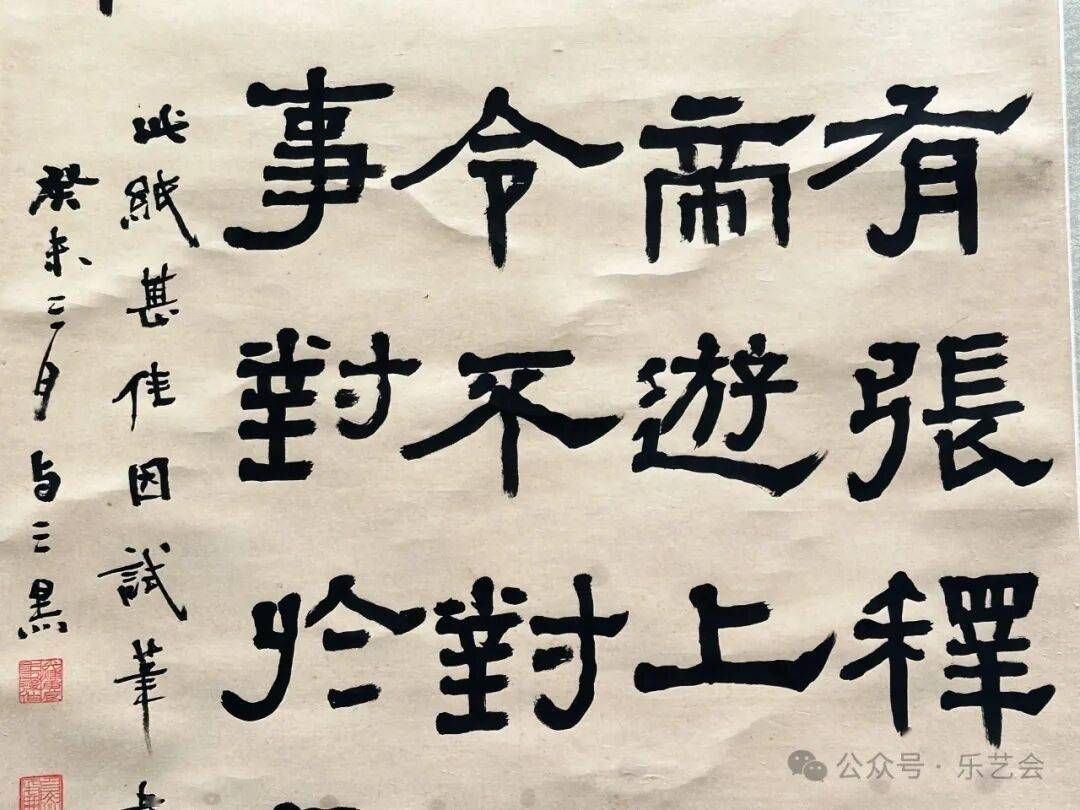 有張釋
帝遊上
令不對
事對於
此紙甚佳因試筆
癸未三月
三黑
公众号 · 乐艺会